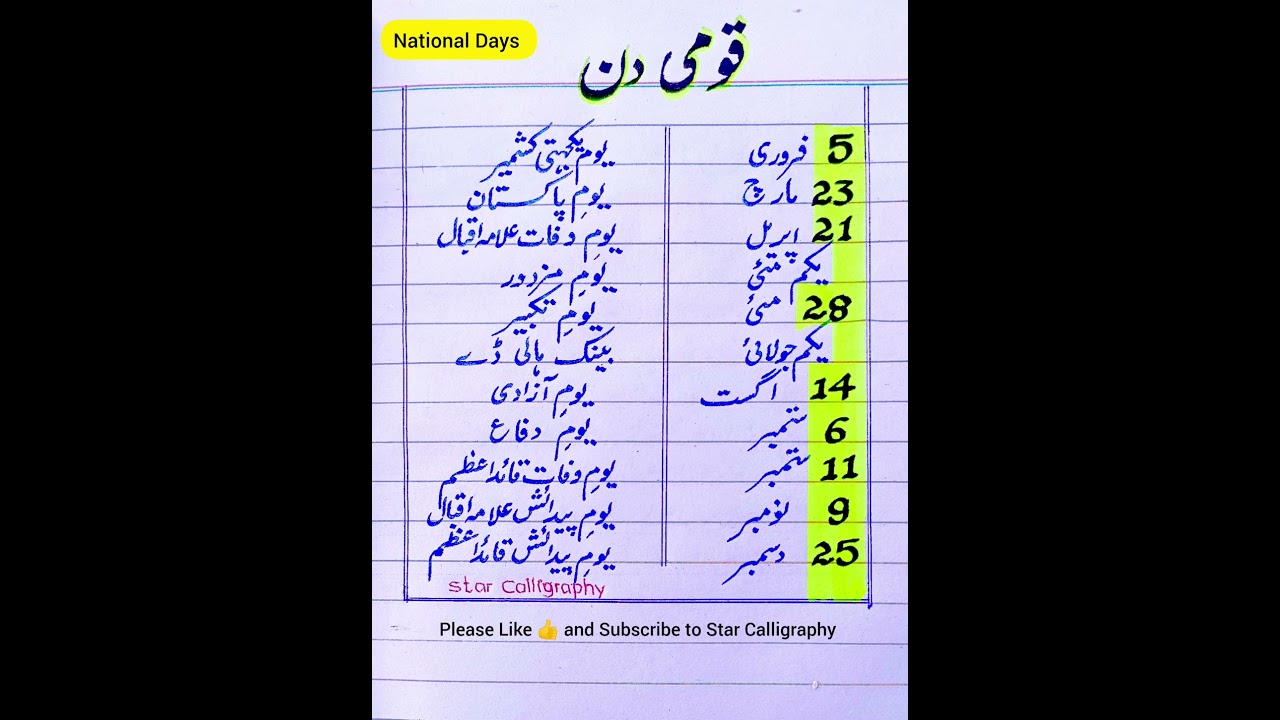 National Days
قومی دن
5 فروری یومِ یکجہتی کشمیر
23 مارچ یومِ پاکستان
21 اپریل یومِ وفات علامہ اقبال
یکم مئی یومِ مزدور
28 مئی یومِ تکبیر
یکم جولائی بینک ہالی ڈے
14 اگست یومِ آزادی
6 ستمبر یومِ دفاع
11 ستمبر یومِ وفات قائداعظم
9 نومبر یومِ پیدائش علامہ اقبال
25 دسمبر یومِ پیدائش قائداعظم
star Calligraphy
Please Like 👍 and Subscribe to Star Calligraphy